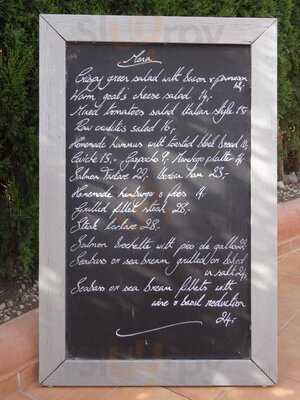 Menu
Crispy green salad with bacon & parmesan
12,-
Warm goat's cheese salad 14,-
Mixed tomatoes salad Italian style 15,-
Raw crudités salad 16,-
Homemade hummus with toasted black bread 10,-
Quiche 15,- Gaspacho 9, platter
Salmon Tartare 22, iberico ham 23,-
Homemade hamburger & fries 19,-
Grilled fillet steak 28,-
Steak tartare 28,-
Salmon brochette with pico de gallo 22,-
Seabass or sea bream grilled/or baked
in salt 24,-
Seabass or sea bream fillets with
wine & basil reduction
24,-